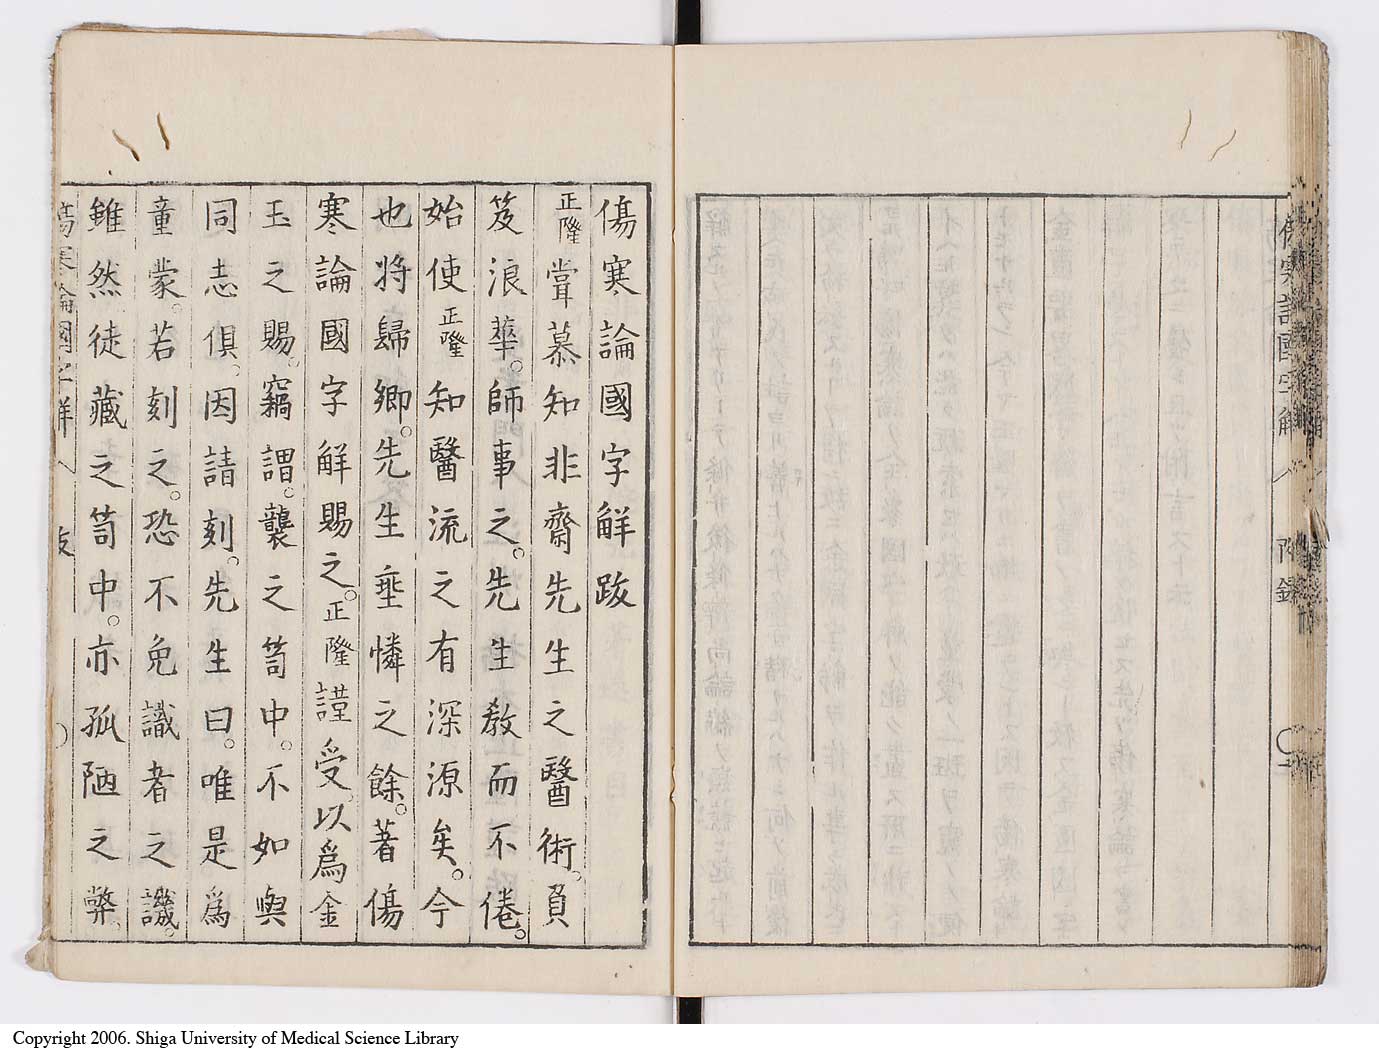 傷寒論國字解跋
正隆嘗慕知非齋先生之醫術。負
笈浪華。師事之。先生教而不倦。
始使正隆知醫流之有深源矣。今
也將歸鄉。先生埀憐之餘。著傷
寒論國字解賜之。正隆謹受。以爲金
玉之賜。竊謂。襲之笥中。不如與
同志俱。因請刻。先生曰。唯是爲
童蒙。若刻之。恐不免識者之譏。
雖然徒藏之笥中。亦孤陋之弊。
傷寒論國字解 跋
傷寒論國字解 附錄
Copyright 2006. Shiga University of Medical Science Library